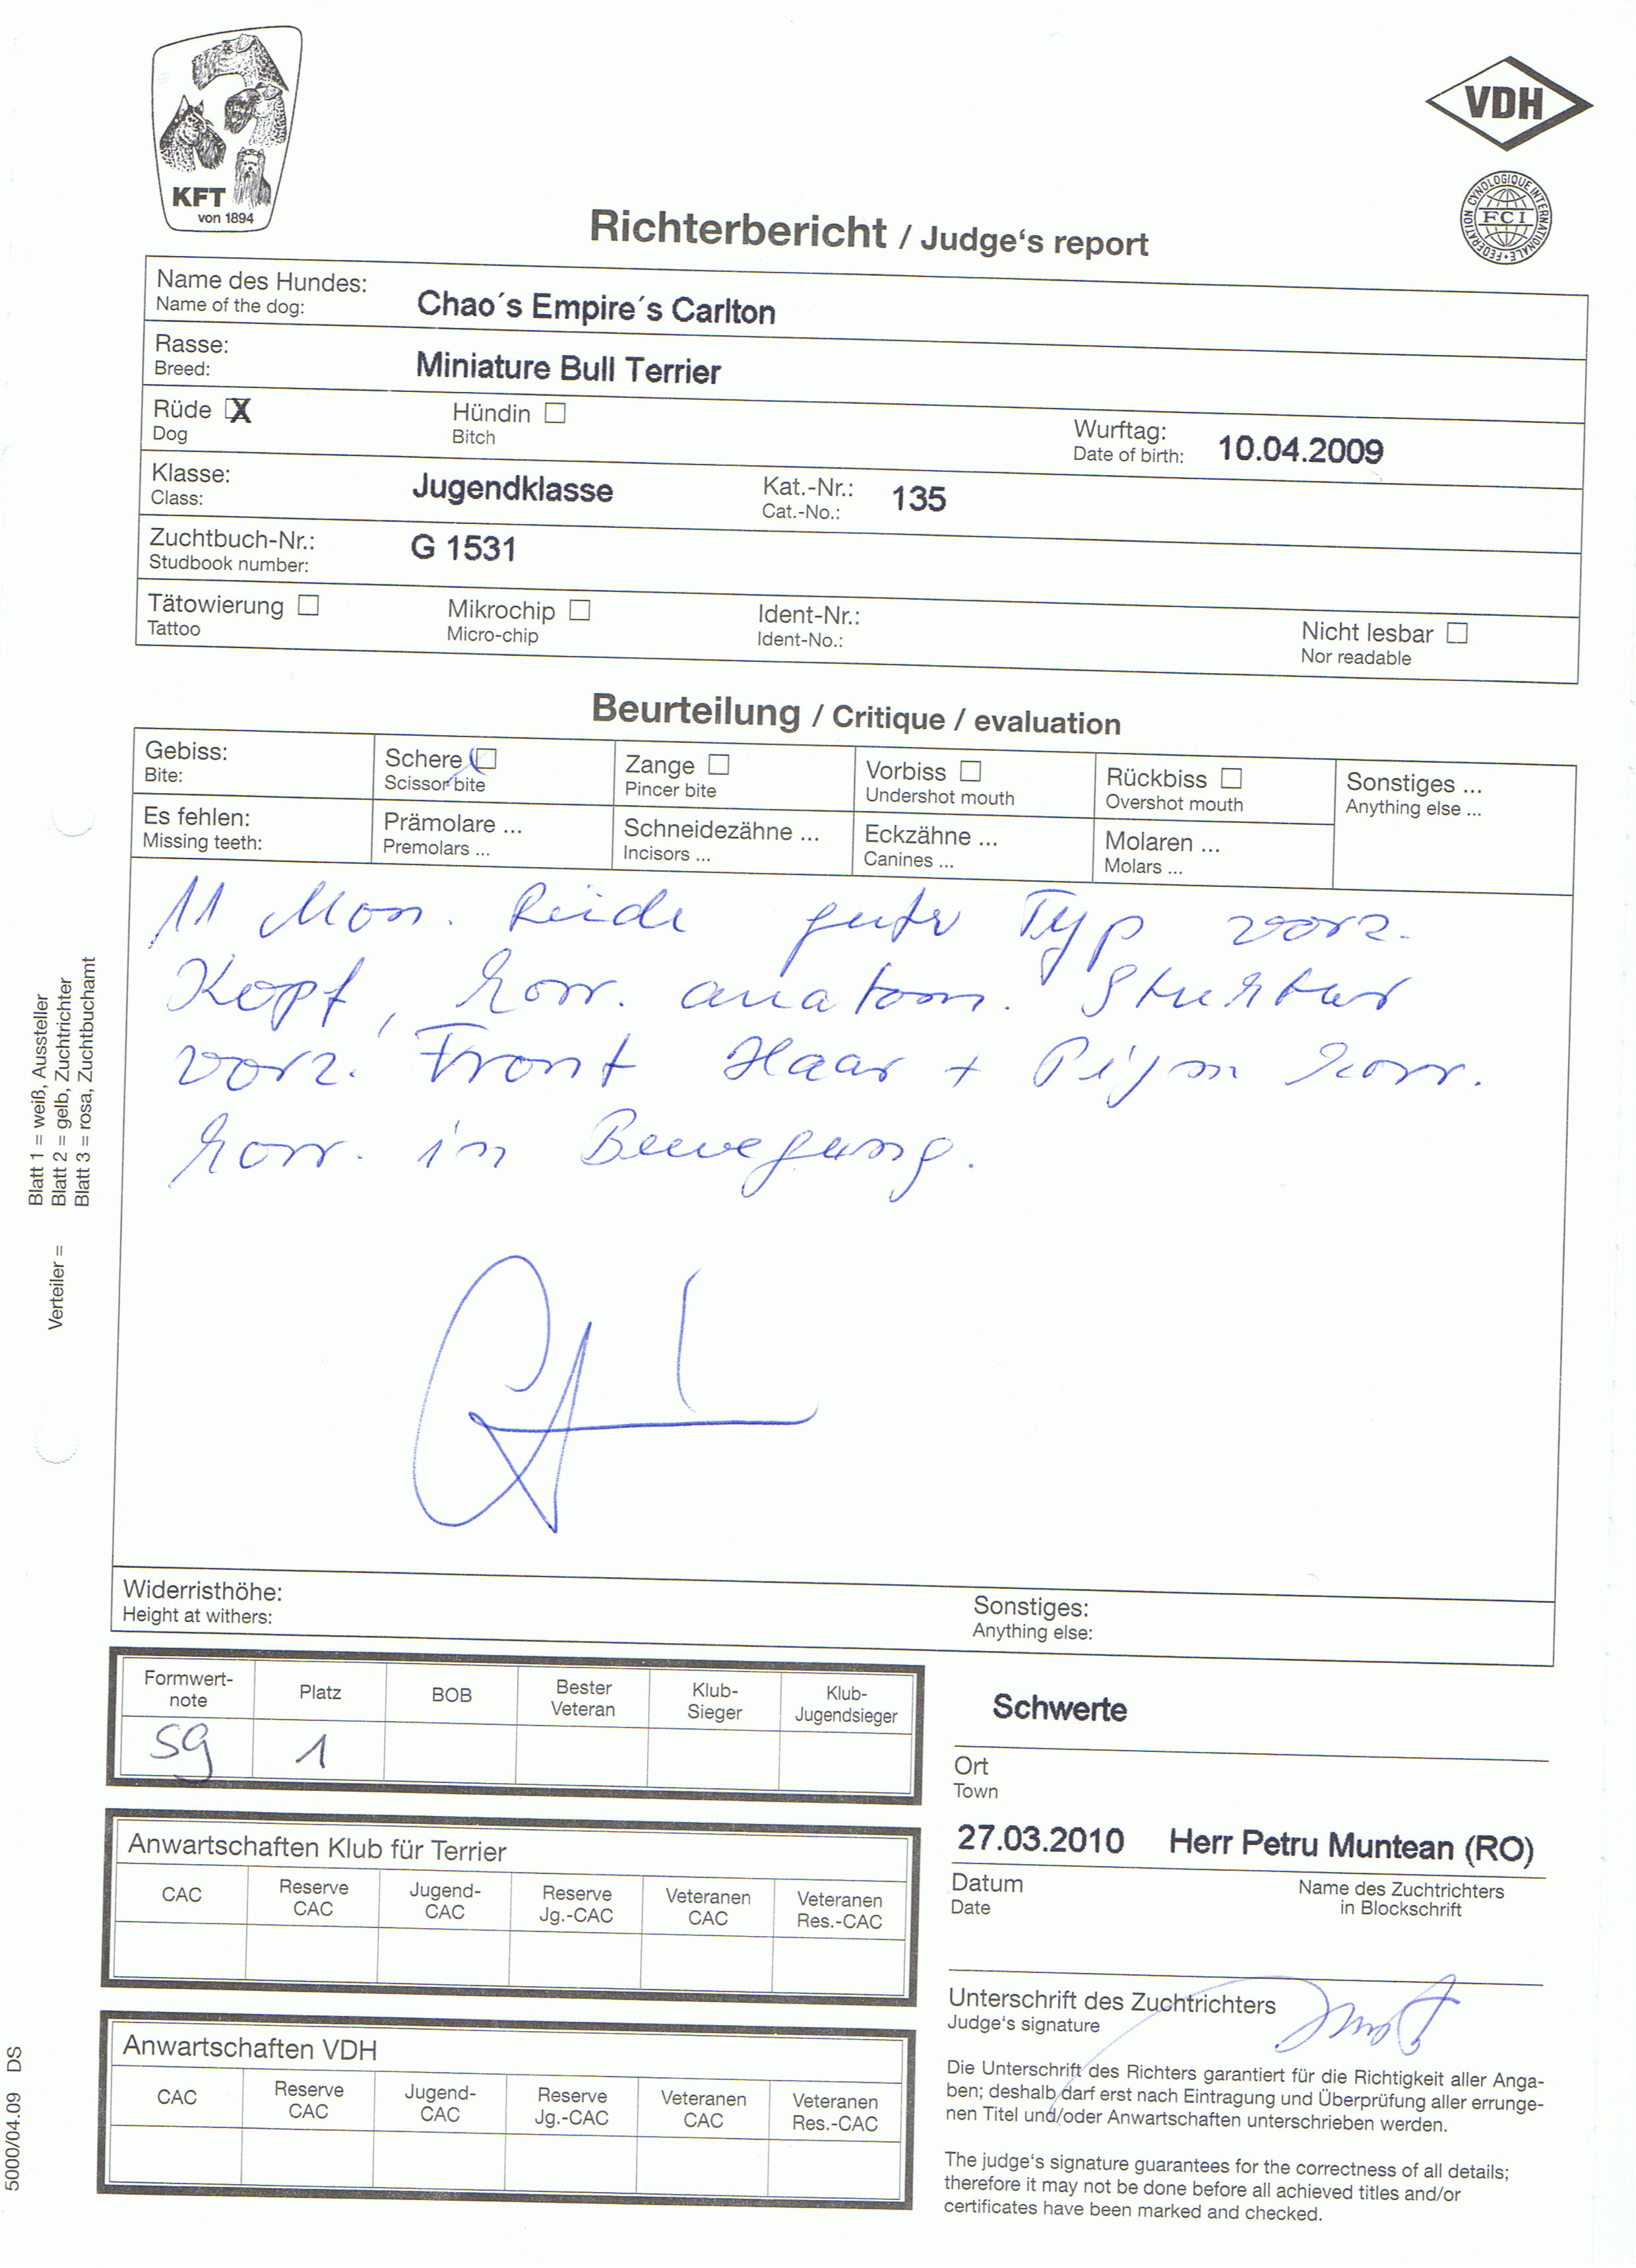 KFT
von 1894
VDH
FEDERATION CYNOLOGIQUE INTERNATIONALE
FCI
Richterbericht / Judge's report
Name des Hundes:
Name of the dog:
Chao´s Empire´s Carlton
Rasse:
Breed:
Miniature Bull Terrier
Rüde X
Dog
Hündin
Bitch
Wurftag:
Date of birth:
10.04.2009
Klasse:
Class:
Jugendklasse
Kat.-Nr.:
Cat.-No.:
135
Zuchtbuch-Nr.:
Studbook number:
G 1531
Tätowierung
Tattoo
Mikrochip
Micro-chip
Ident-Nr.:
Ident-No.:
Nicht lesbar
Nor readable
Beurteilung / Critique / evaluation
Gebiss:
Bite:
Schere
Scissor bite
Zange
Pincer bite
Vorbiss
Undershot mouth
Rückbiss
Overshot mouth
Sonstiges ...
Anything else ...
Es fehlen:
Missing teeth:
Prämolare ...
Premolars ...
Schneidezähne ...
Incisors ...
Eckzähne ...
Canines ...
Molaren ...
Molars ...
11 Mon. Rüde guter Typ vorz.
Kopf, korr. anatom. Struktur
vorz. Front Haar + Pigm korr.
korr. in Bewegung.
Widerristhöhe:
Height at withers:
Sonstiges:
Anything else:
Formwert-
note
Platz
BOB
Bester
Veteran
Klub-
Sieger
Klub-
Jugendsieger
sg
1
Anwartschaften Klub für Terrier
CAC
Reserve
CAC
Jugend-
CAC
Reserve
Jg.-CAC
Veteranen
CAC
Veteranen
Res.-CAC
Anwartschaften VDH
CAC
Reserve
CAC
Jugend-
CAC
Reserve
Jg.-CAC
Veteranen
CAC
Veteranen
Res.-CAC
Schwerte
Ort
Town
27.03.2010 Herr Petru Muntean (RO)
Datum
Date
Name des Zuchtrichters
in Blockschrift
Unterschrift des Zuchtrichters
Judge's signature
Die Unterschrift des Richters garantiert für die Richtigkeit aller Anga-
ben; deshalb darf erst nach Eintragung und Überprüfung aller errunge-
nen Titel und/oder Anwartschaften unterschrieben werden.
The judge's signature guarantees for the correctness of all details;
therefore it may not be done before all achieved titles and/or
certificates have been marked and checked.
Verteiler = Blatt 1 = weiß, Aussteller
Blatt 2 = gelb, Zuchtrichter
Blatt 3 = rosa, Zuchtbuchamt
5000/04.09 DS